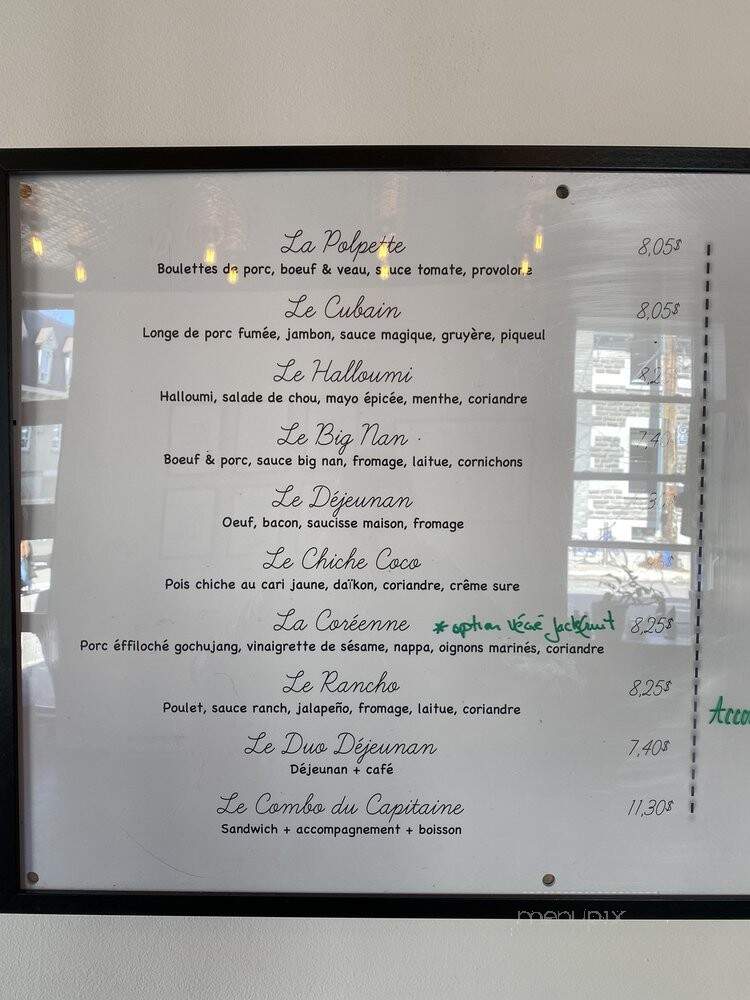 La Polpette 8,05$
Boulettes de porc, boeuf & veau, sauce tomate, provolone
Le Cubain 8,05$
Longe de porc fumée, jambon, sauce magique, gruyère, piqueul
Le Halloumi
Halloumi, salade de chou, mayo épicée, menthe, coriandre
Le Big Nan
Boeuf & porc, sauce big nan, fromage, laitue, cornichons
Le Déjeunan
Oeuf, bacon, saucisse maison, fromage
Le Chiche Coco
Pois chiche au cari jaune, daïkon, coriandre, crême sure
La Coréenne * option végé jackfruit 8,25$
Porc éffiloché gochujang, vinaigrette de sésame, nappa, oignons marinés, coriandre
Le Rancho 8,25$
Poulet, sauce ranch, jalapeño, fromage, laitue, coriandre
Le Duo Déjeunan 7,40$
Déjeunan + café
Le Combo du Capitaine 11,30$
Sandwich + accompagnement + boisson
menupix